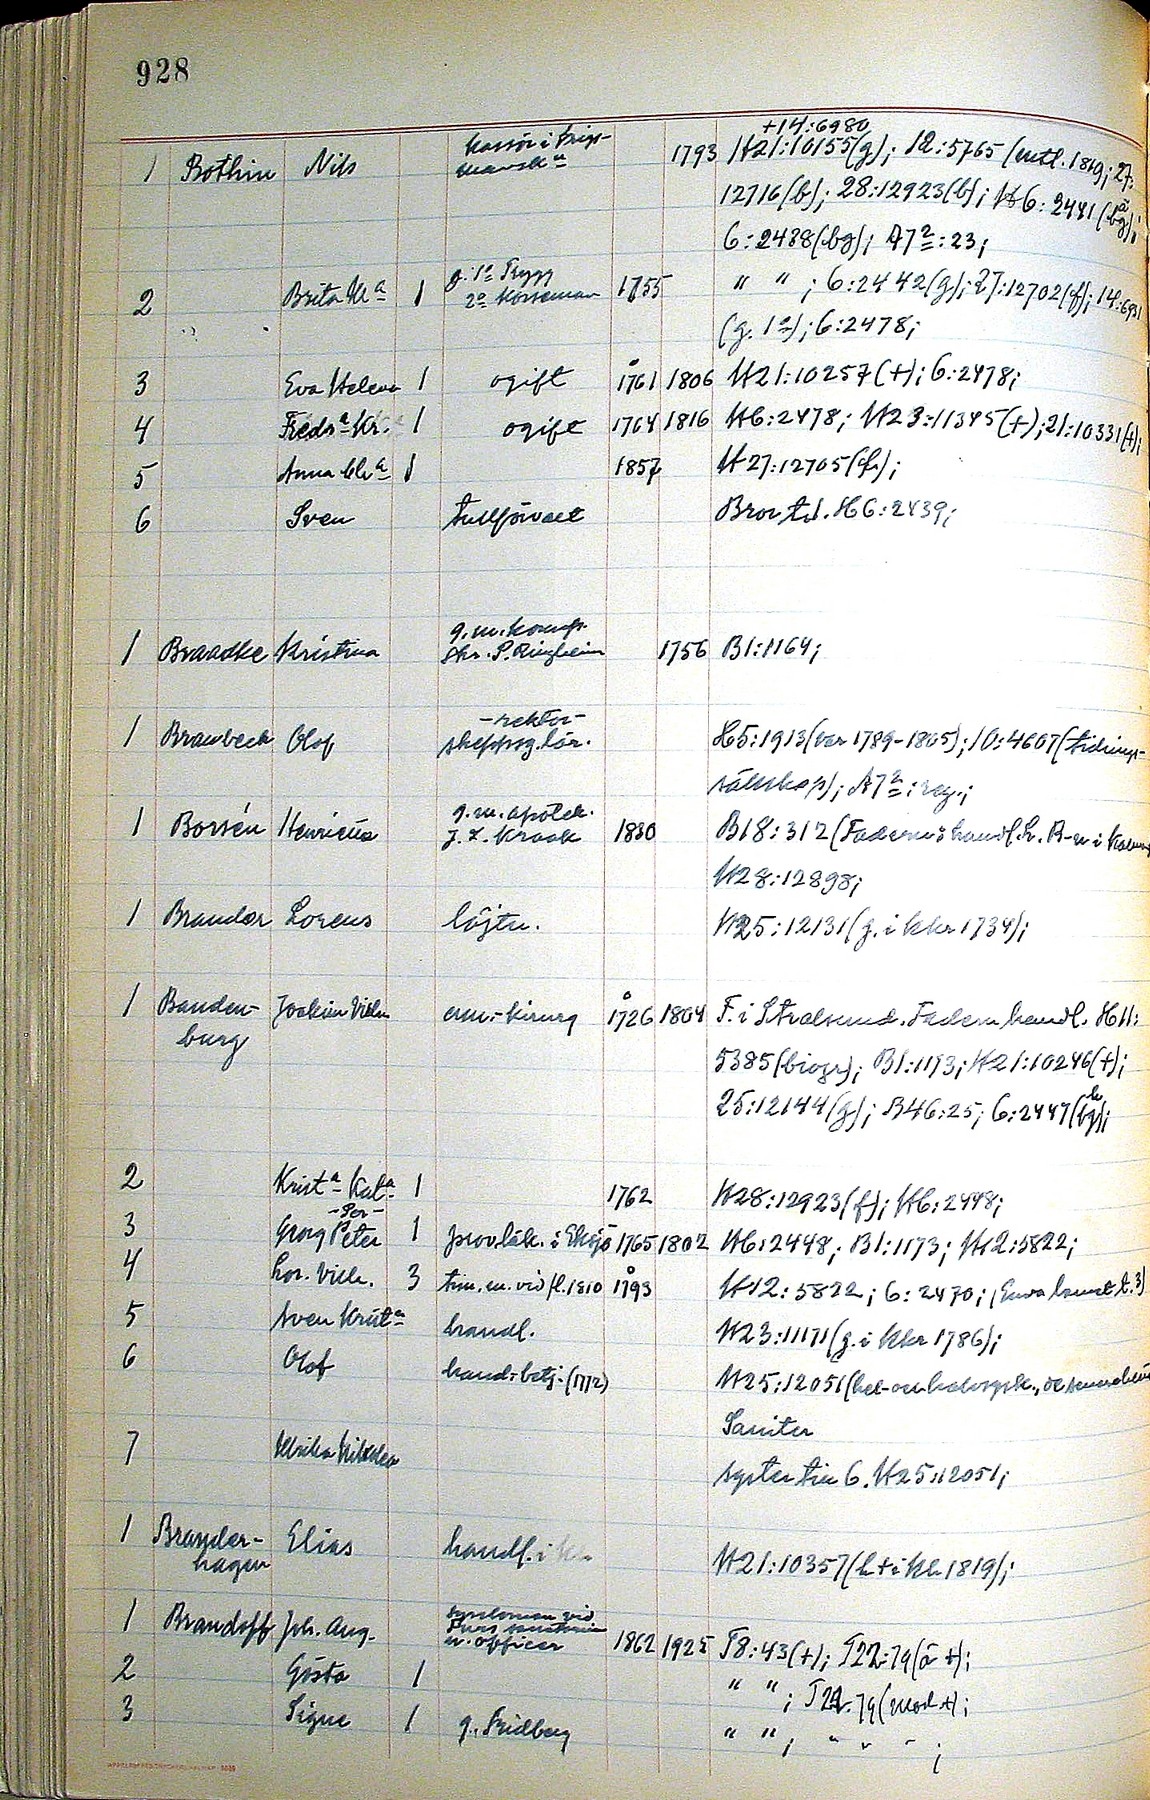 928
+14:6980
1 Bothin Nils kassör i krigs- 1793 H21:10155(g); 12:5765 (entl. 1819; 27:
12716(b); 28:12923(b); H6:2441(bg);
6:2438(bg); A7²:23;
2 Brita Kr^a 1 g. 1° Trygg 2° Norseman 1755 " " ; 6:2442(g); 27:12702(f); 14:6931
(g. 1°); 6:2478;
3 Eva Helena 1 ogift 1761 1806 H21:10257(+); 6:2478;
4 Fredr^a Kr. 1 ogift 1764 1816 H6:2478; H23:11345(+); 21:10331(+);
5 Anna Chr^a 1 1857 H27:12705(f);
6 Sven tullförvalt Bror t. 1. H6:2439;
1 Braadke Kristina g. m. komp. skr. P. Ringheim 1756 B1:1164;
1 Brawbeck Olof -rektor- skeppsg.lär. H5:1913(var 1789-1805); 10:4607(tidnings-
sällskap); A7²: reg.;
1 Borsén Henricus g. m. apotek. J. L. Kraak 1830 B18:312(Fadern: handl. i
H28:12898;
1 Brander Lorens löjtn. H25:12131(g. i kkr 1734);
1 Branden-
burg Joakim Vilh. am:kirurg 1726 1804 F. i Stralsund. Fadern handl. H11:
5385(biogr); B1:1173; H21:10246(+);
25:12144(g); B46:25; 6:2447(bg);
2 Krist^a Kat^a 1 1762 H28:12923(f); H6:2448;
-Per-
3 Georg Peter 1 prov.läk. i Eksjö 1765 1802 H6:2448; B1:1173; H12:5822;
4 Lor. Vilh. 3 tim.m. vid fl. 1810 1793 H12:5822; 6:2470;
5 Sven Krist^a handl. H23:11171(g. i kkr 1786);
6 Olof hand:betj. (1772) H25:12051(
7 Ulrika syster till 6. H25:12051;
1 Brander-
hagen Elias handl. i H21:10357(h + i kk 1819);
1 Brandoff Joh. Aug. syssloman vid u.officer 1862 1925 T8:43(+); T22:79(ä +);
2 Gösta 1 " " ; T22:79(mod +);
3 Signe 1 g. Fridberg " " ; " " " ;